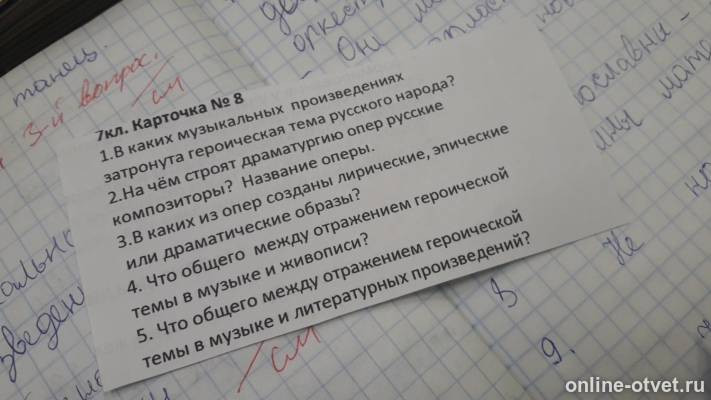 танец.
3-й вопрос.
см
оркест
Они
7кл. Карточка № 8
1.В каких музыкальных произведениях
затронута героическая тема русского народа?
2.На чём строят драматургию опер русские
композиторы? Название оперы.
3.В каких из опер созданы лирические, эпические
или драматические образы?
4. Что общего между отражением героической
темы в музыке и живописи?
5. Что общего между отражением героической
темы в музыке и литературных произведений?
см
Не
в
9.
online-otvet.ru